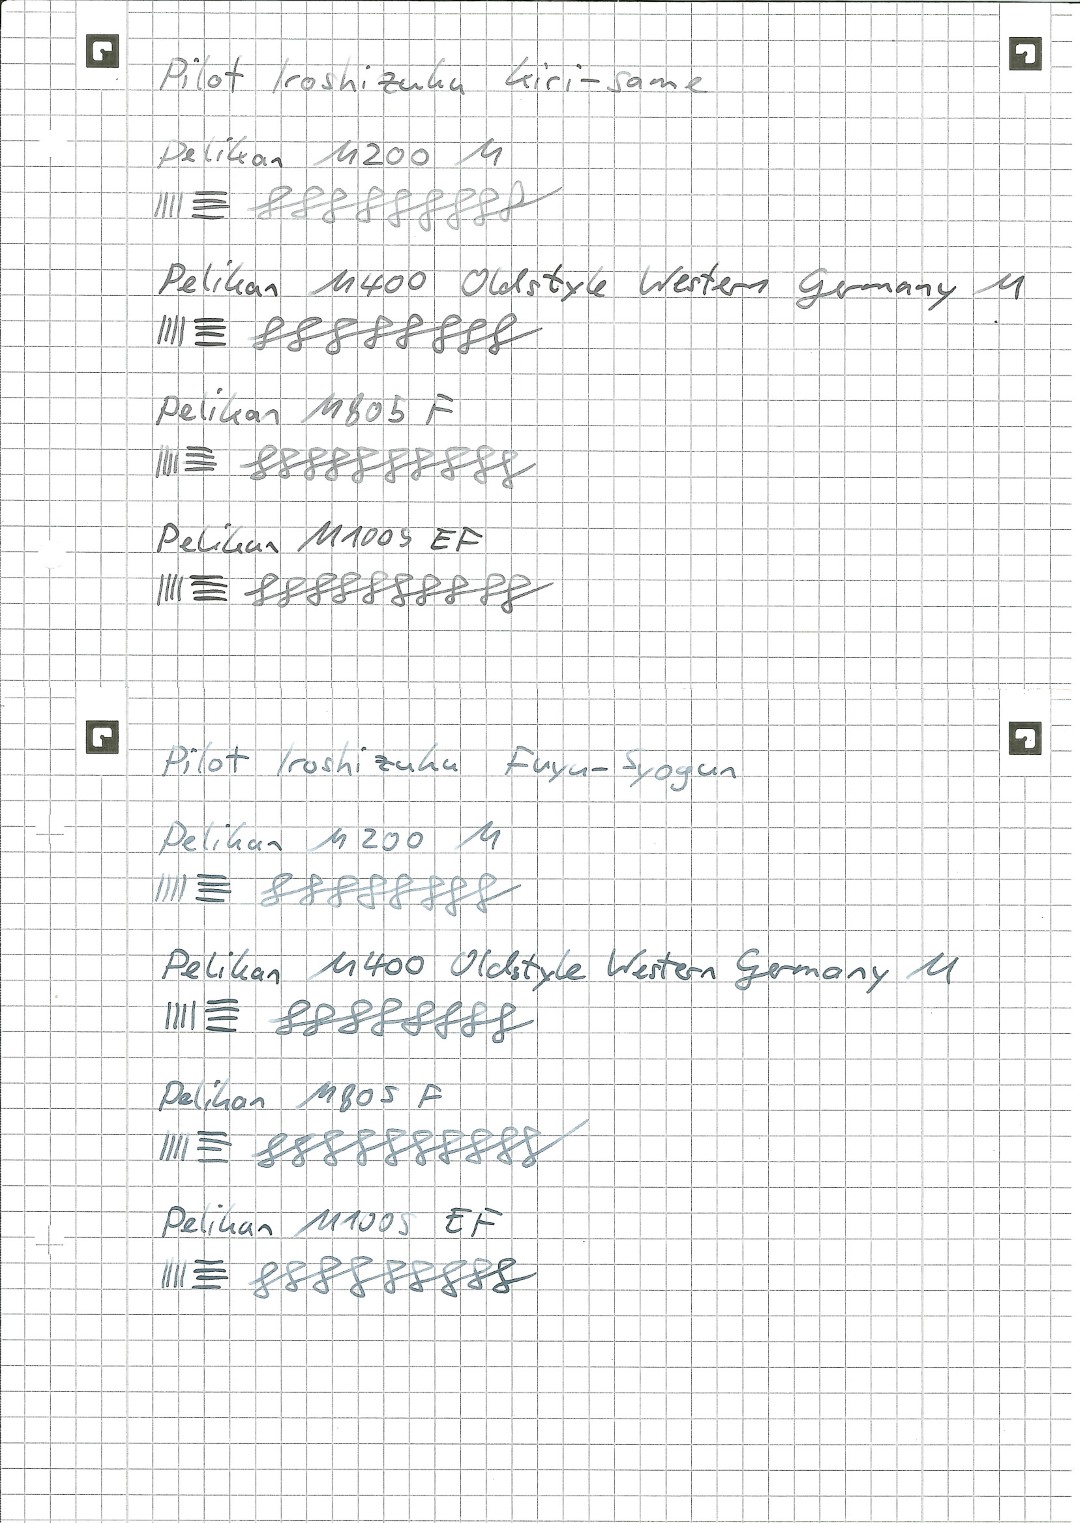 Pilot Iroshizuku kiri-same
Pelikan M200 M
Pelikan M400 Oldstyle Western Germany M
Pelikan M805 F
Pelikan M1005 EF
Pilot Iroshizuku Fuyu-Syogun
Pelikan M200 M
Pelikan M400 Oldstyle Western Germany M
Pelikan M805 F
Pelikan M1005 EF